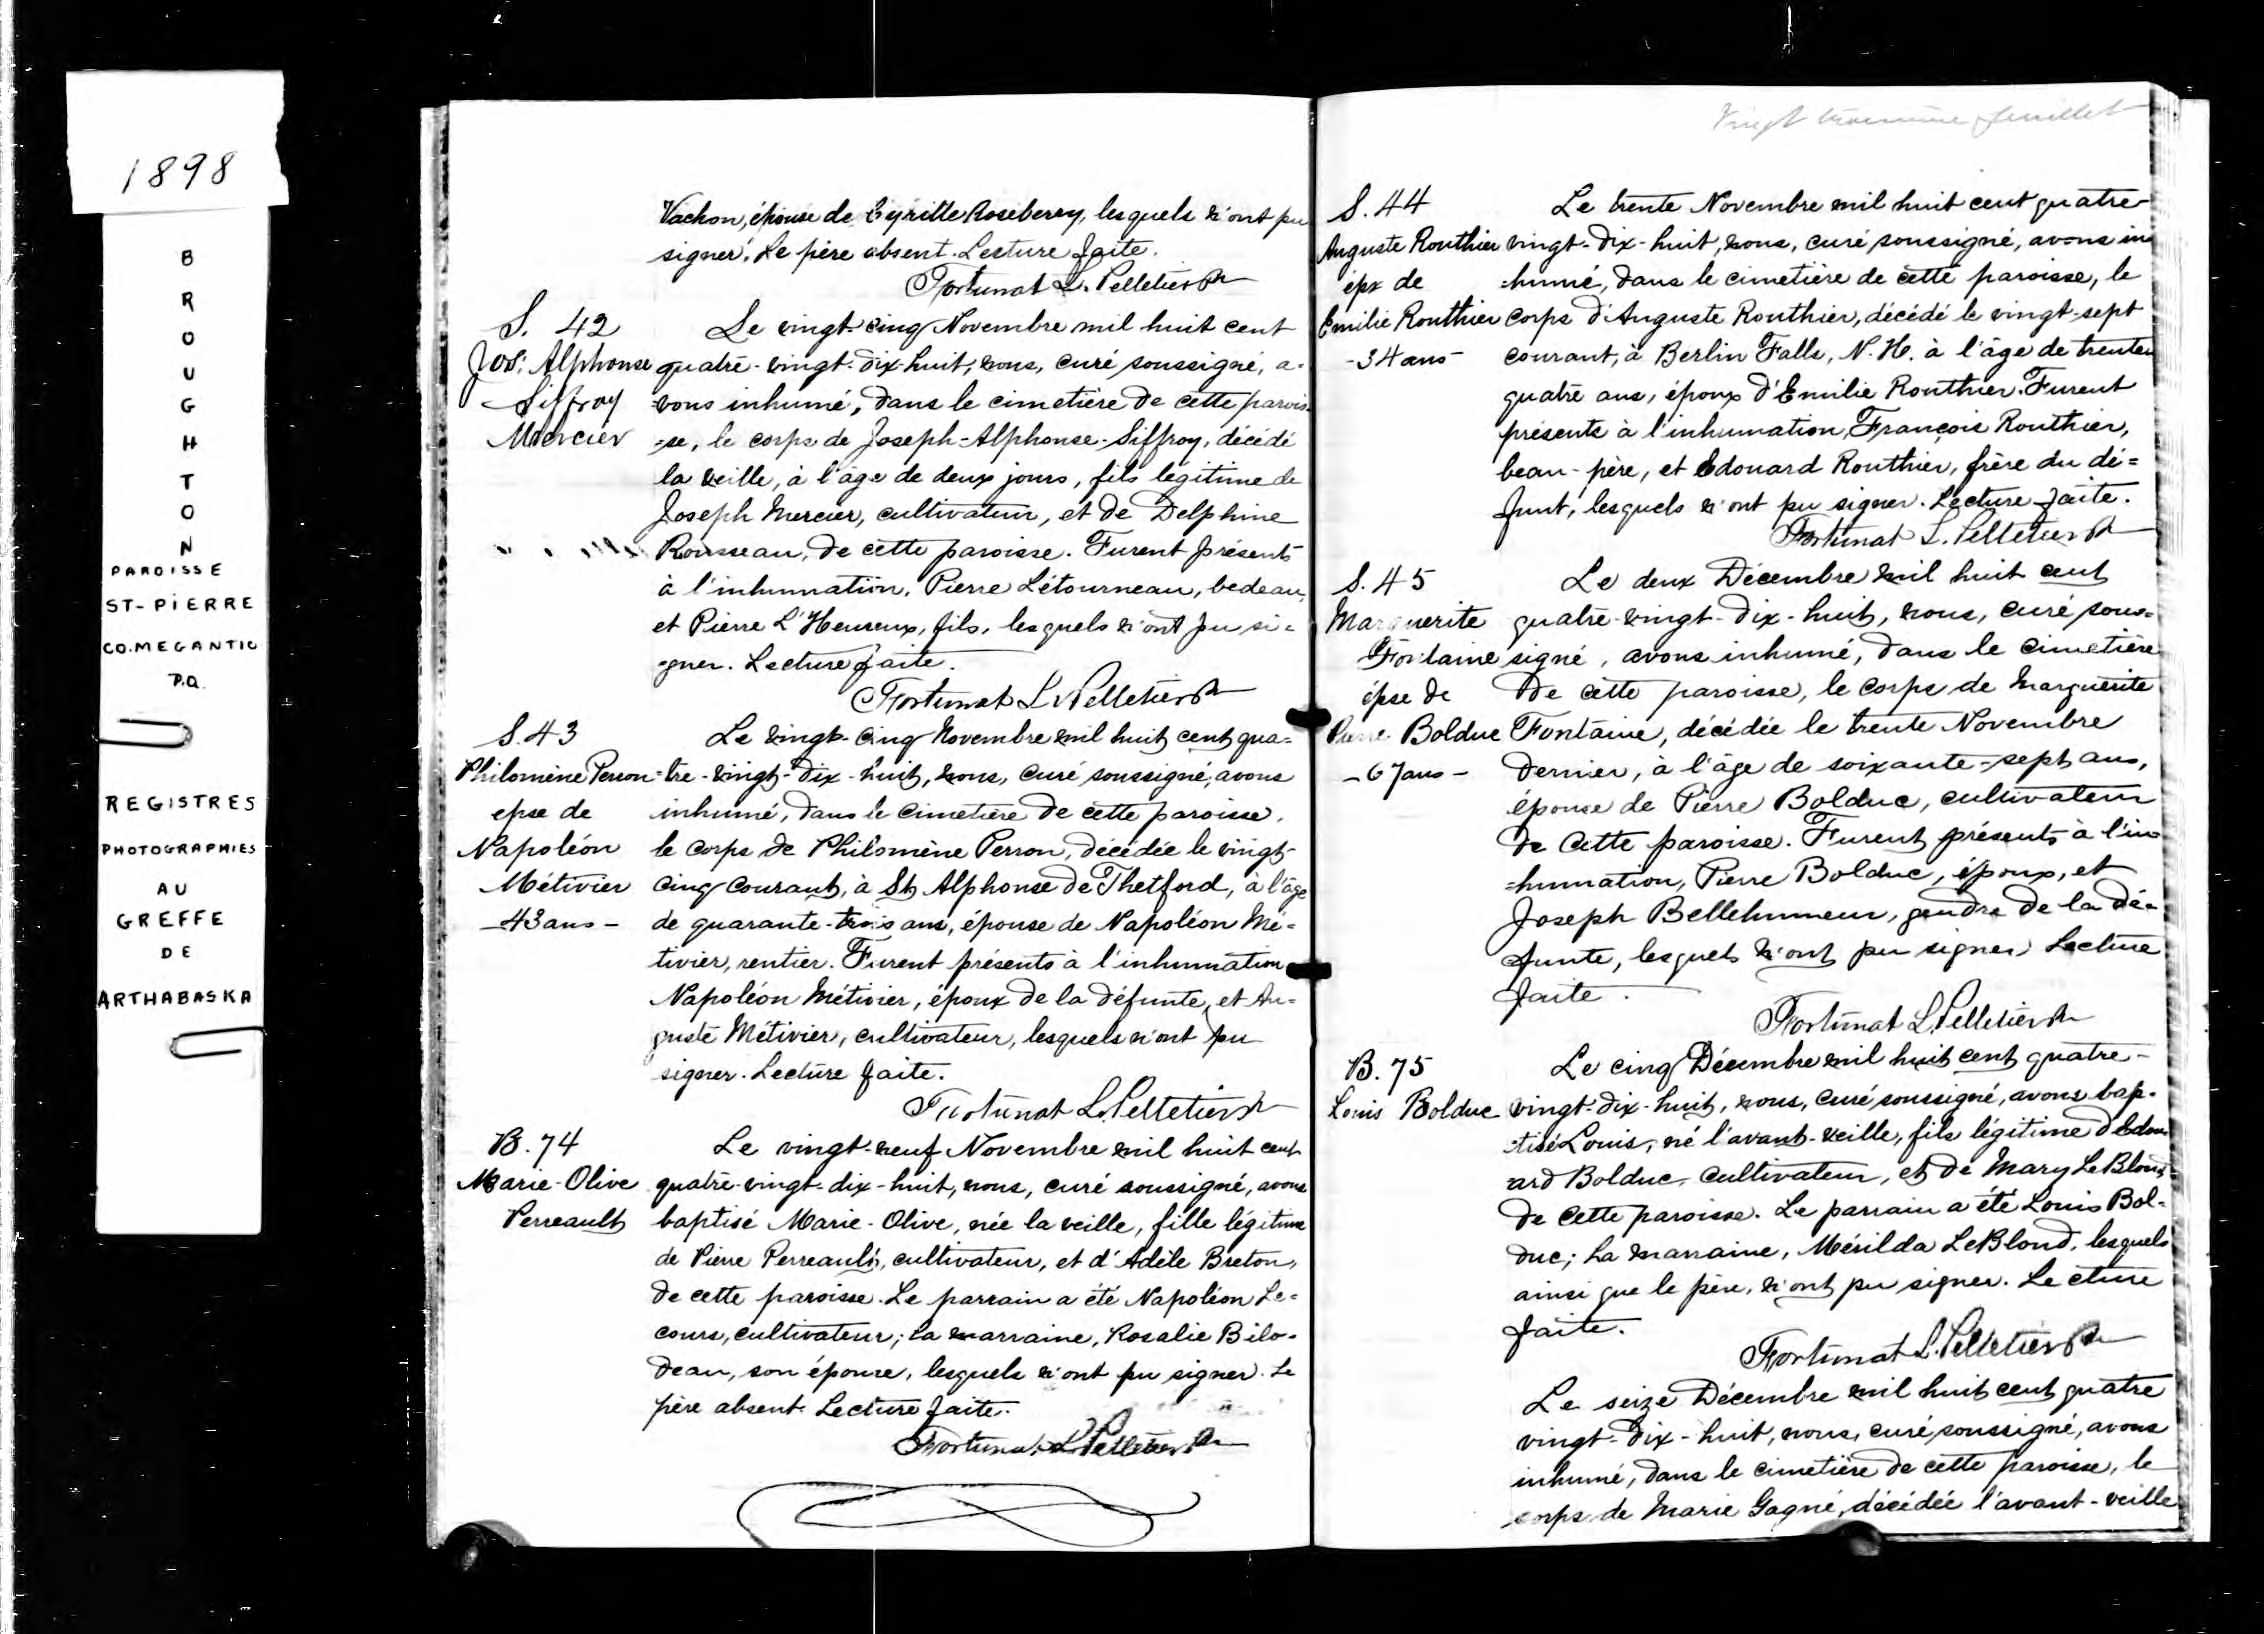 1898
BROUGHTON
PAROISSE
ST-PIERRE
CO. MEGANTIC
P.Q.
REGISTRES
PHOTOGRAPHIES
AU
GREFFE
DE
ARTHABASKA
Vachon, épouse de Cyrille Roseberry, lesquels n'ont pu
signer. Le père absent. Lecture faite.
Fortunat L. Pelletier Ptre
S. 42
Jos. Alphonse
Siffroy
Mercier
Le vingt-cinq Novembre mil huit cent
quatre-vingt-dix-huit, nous, curé soussigné, a-
-vons inhumé, dans le cimetière de cette parois-
-se, le corps de Joseph-Alphonse-Siffroy, décédé
la veille, à l'âge de deux jours, fils légitime de
Joseph Mercier, cultivateur, et de Delphine
Rousseau, de cette paroisse. Furent présents
à l'inhumation, Pierre Létourneau, bedeau,
et Pierre L'Heureux, fils, lesquels n'ont pu si-
-gner. Lecture faite.
Fortunat L. Pelletier Ptre
S. 43
Philomène Perron
epse de
Napoléon
Métivier
-43 ans-
Le vingt-cinq Novembre mil huit cent qua-
-tre-vingt-dix-huit, nous, curé soussigné, avons
inhumé, dans le cimetière de cette paroisse,
le corps de Philomène Perron, décédée le vingt-
cinq courant, à St Alphonse de Thetford, à l'âge
de quarante-trois ans, épouse de Napoléon Mé-
tivier, rentier. Furent présents à l'inhumation
Napoléon Métivier, époux de la défunte, et Au-
guste Métivier, cultivateur, lesquels n'ont pu
signer. Lecture faite.
Fortunat L. Pelletier Ptre
B. 74
Marie-Olive
Perreault
Le vingt-neuf Novembre mil huit cent
quatre-vingt-dix-huit, nous, curé soussigné, avons
baptisé Marie-Olive, née la veille, fille légitime
de Pierre Perreault, cultivateur, et d'Adèle Breton,
de cette paroisse. Le parrain a été Napoléon Le-
cours, cultivateur; la marraine, Rosalie Bilo-
deau, son épouse, lesquels n'ont pu signer. Le
père absent. Lecture faite.
Fortunat L. Pelletier Ptre
Vingt troisième feuillet
S. 44
Auguste Routhier
épx de
Emilie Routhier
-34 ans-
Le trente Novembre mil huit cent quatre-
vingt-dix-huit, nous, curé soussigné, avons in
-humé, dans le cimetière de cette paroisse, le
corps d'Auguste Routhier, décédé le vingt-sept
courant, à Berlin Falls, N. H. à l'âge de trente
quatre ans, époux d'Emilie Routhier. Furent
présents à l'inhumation, François Routhier,
beau-père, et Edouard Routhier, frère du dé-
funt, lesquels n'ont pu signer. Lecture faite.
Fortunat L. Pelletier Ptre
S. 45
Marguerite
Fontaine
épse de
Pierre Bolduc
-67 ans-
Le deux Décembre mil huit cent
quatre-vingt-dix-huit, nous, curé sous-
signé, avons inhumé, dans le cimetière
de cette paroisse, le corps de Marguerite
Fontaine, décédée le trente Novembre
dernier, à l'âge de soixante-sept ans,
épouse de Pierre Bolduc, cultivateur
de cette paroisse. Furent présents à l'in
-humation, Pierre Bolduc, époux, et
Joseph Bellehumeur, gendre de la dé-
funte, lesquels n'ont pu signer. Lecture
faite.
Fortunat L. Pelletier Ptre
B. 75
Louis Bolduc
Le cinq Décembre mil huit cent quatre-
vingt-dix-huit, nous, curé soussigné, avons bap-
-tisé Louis, né l'avant-veille, fils légitime d'Edou
ard Bolduc, cultivateur, et de Mary LeBlond,
de cette paroisse. Le parrain a été Louis Bol-
duc; la marraine, Mérilda LeBlond, lesquels
ainsi que le père, n'ont pu signer. Lecture
faite.
Fortunat L. Pelletier Ptre
Le seize Décembre mil huit cent quatre
vingt-dix-huit, nous, curé soussigné, avons
inhumé, dans le cimetière de cette paroisse, le
corps de Marie Gagné, décédée l'avant-veille